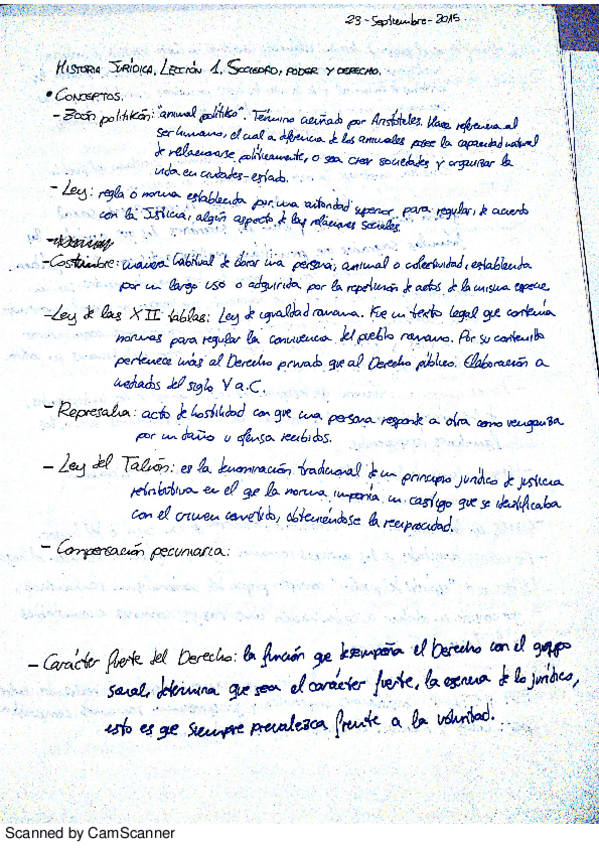 23-Septiembre-2015.
HISTORIA JURÍDICA. LECCIÓN 1. SOCIEDAD, PODER Y DERECHO.
• CONCEPTOS.
- Zoón politikón: "animal político". Término acuñado por Aristóteles. Hace referencia al
ser humano, el cual a diferencia de los animales posee la capacidad natural
de relacionarse políticamente, o sea crear sociedades y organizar la
vida en ciudades-estado.
- Ley: regla o norma establecida por una autoridad superior para regular, de acuerdo
con la Justicia, algún aspecto de las relaciones sociales.
- Costumbre: manera habitual de obrar una persona, animal o colectividad, establecida
por un largo uso o adquirida por la repetición de actos de la misma especie.
- Ley de las XII tablas: Ley de igualdad romana. Fue un texto legal que contenía
normas para regular la convivencia del pueblo romano. Por su contenido
pertenece más al Derecho privado que al Derecho público. Elaboración a
mediados del siglo V a.C.
- Represalia: acto de hostilidad con que una persona responde a otra como venganza
por un daño u ofensa recibidos.
- Ley del Talión: es la denominación tradicional de un principio jurídico de justicia
retributiva en el que la norma imponía un castigo que se identificaba
con el crimen cometido, obteniéndose la reciprocidad.
- Compensación pecuniaria:
- Carácter fuerte del Derecho: la función que desempeña el Derecho con el grupo
social, determina que sea el carácter fuerte, la esencia de lo jurídico,
esto es que siempre prevalezca frente a la voluntad.
Scanned by CamScanner